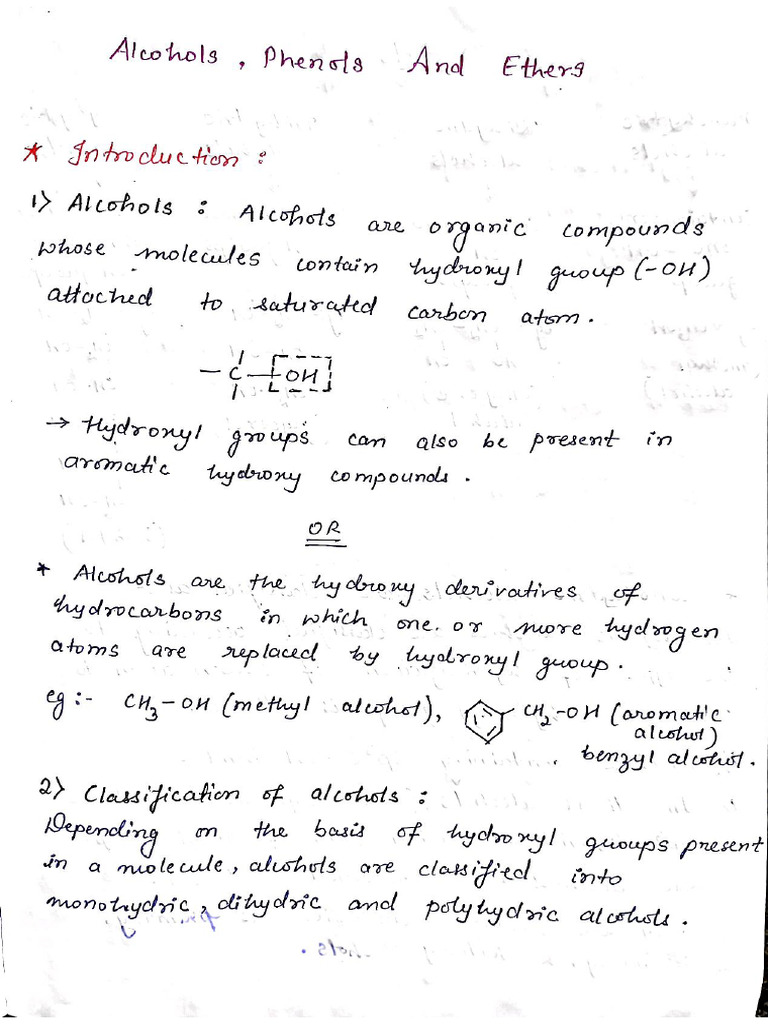 Alcohols, Phenols And Ethers
* Introduction :
1) Alcohols : Alcohols are organic compounds
whose molecules contain hydroxyl group (-OH)
attached to saturated carbon atom.
- C - OH
→ Hydroxyl groups can also be present in
aromatic hydroxy compounds.
OR
* Alcohols are the hydroxy derivatives of
hydrocarbons in which one or more hydrogen
atoms are replaced by hydroxyl group.
eg :- CH3-OH (methyl alcohol), CH2-OH (aromatic
alcohol)
benzyl alcohol.
2) Classification of alcohols :
Depending on the basis of hydroxyl groups present
in a molecule, alcohols are classified into
monohydric, dihydric and polyhydric alcohols.